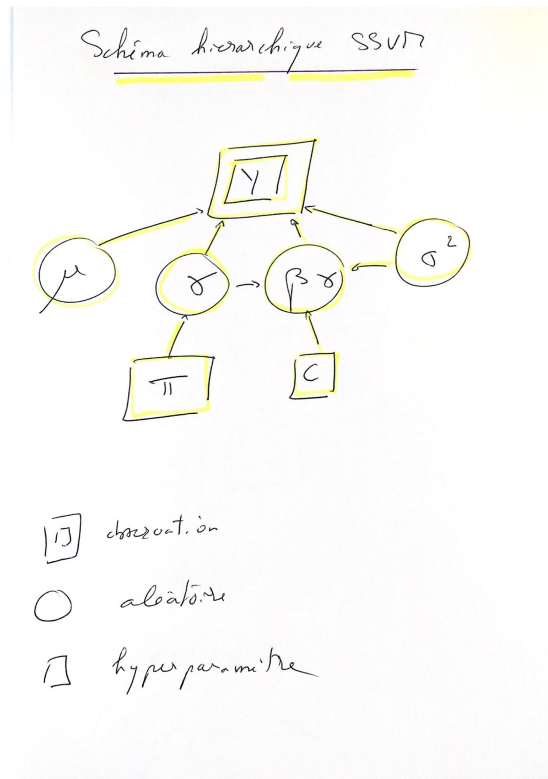 Schéma hiérarchique SSVM
Y
μ γ βγ σ²
π C
observation
aléatoire
hyperparamètre